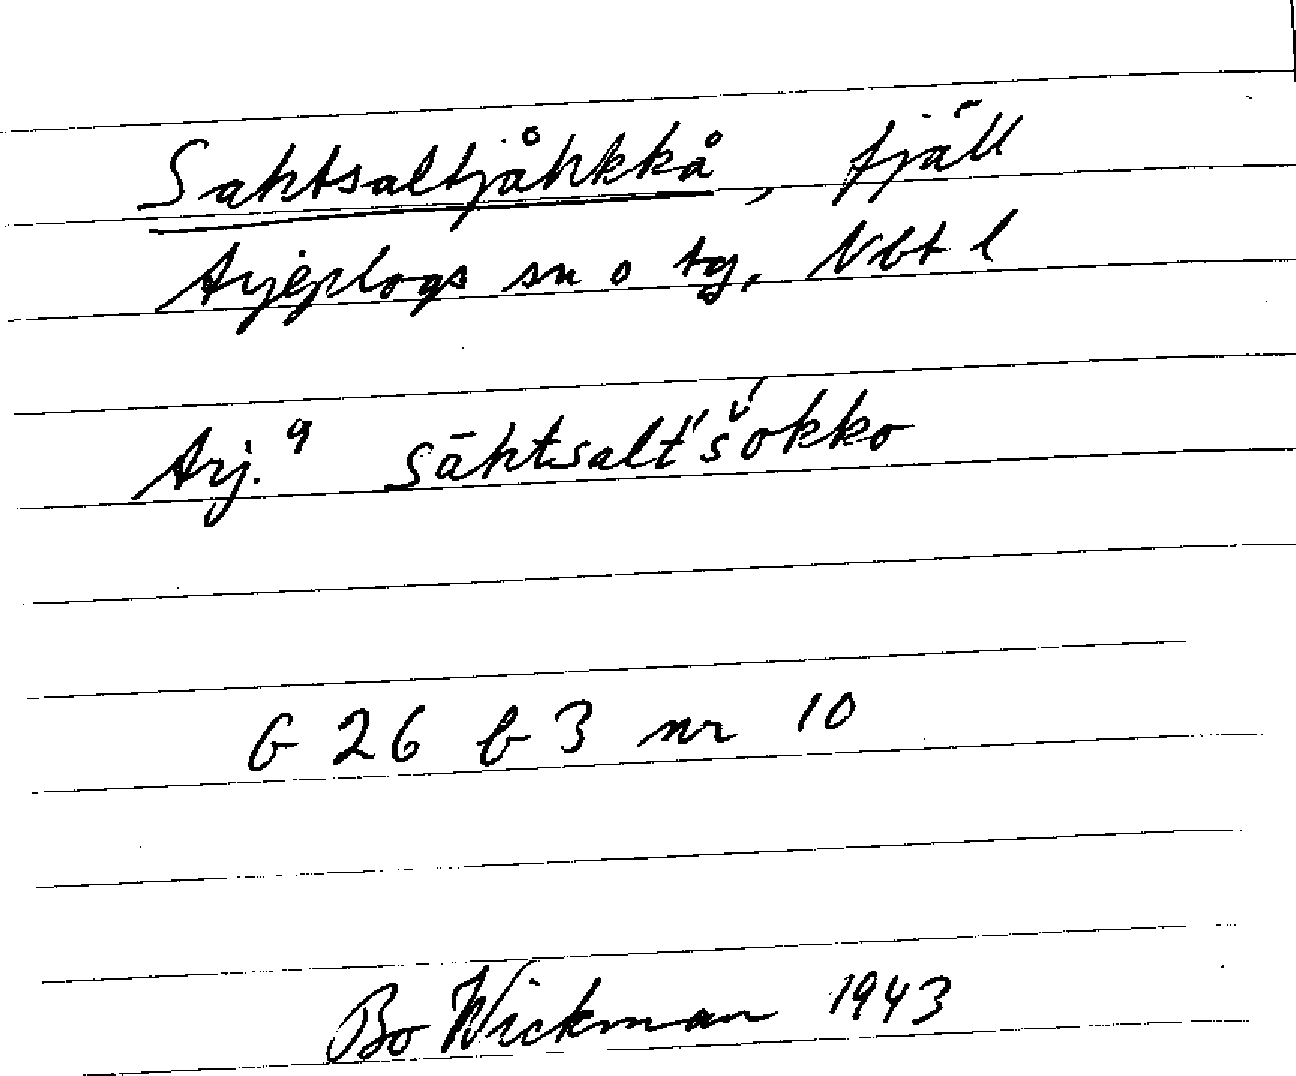 Sahtsaltjåhkkå, fjäll
Arjeplogs sn o tg, Nbt l
Arj. 9 sāhtsalt́š́okko
G 26 b 3 nr 10
Bo Wickman 1943